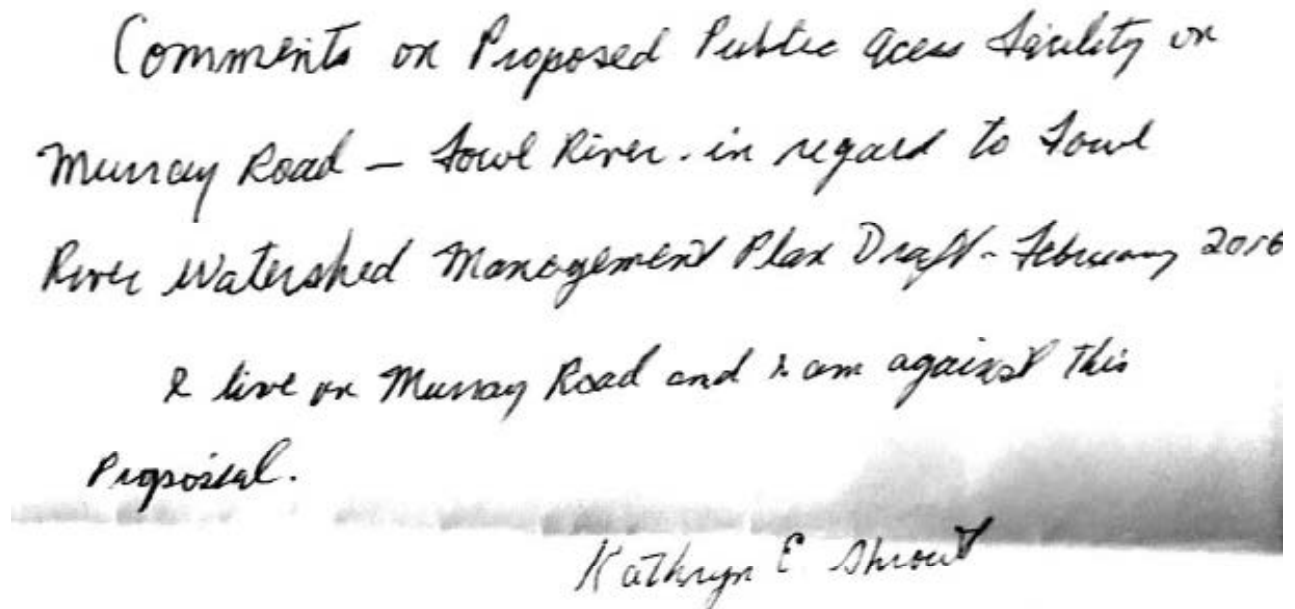 Comments on Proposed Public acess facility on
Murray Road - Fowl River. in regard to Fowl
River Watershed Management Plan Draft - February 2016
I live on Murray Road and I am against this
Proposal.
Kathryn E Shrout